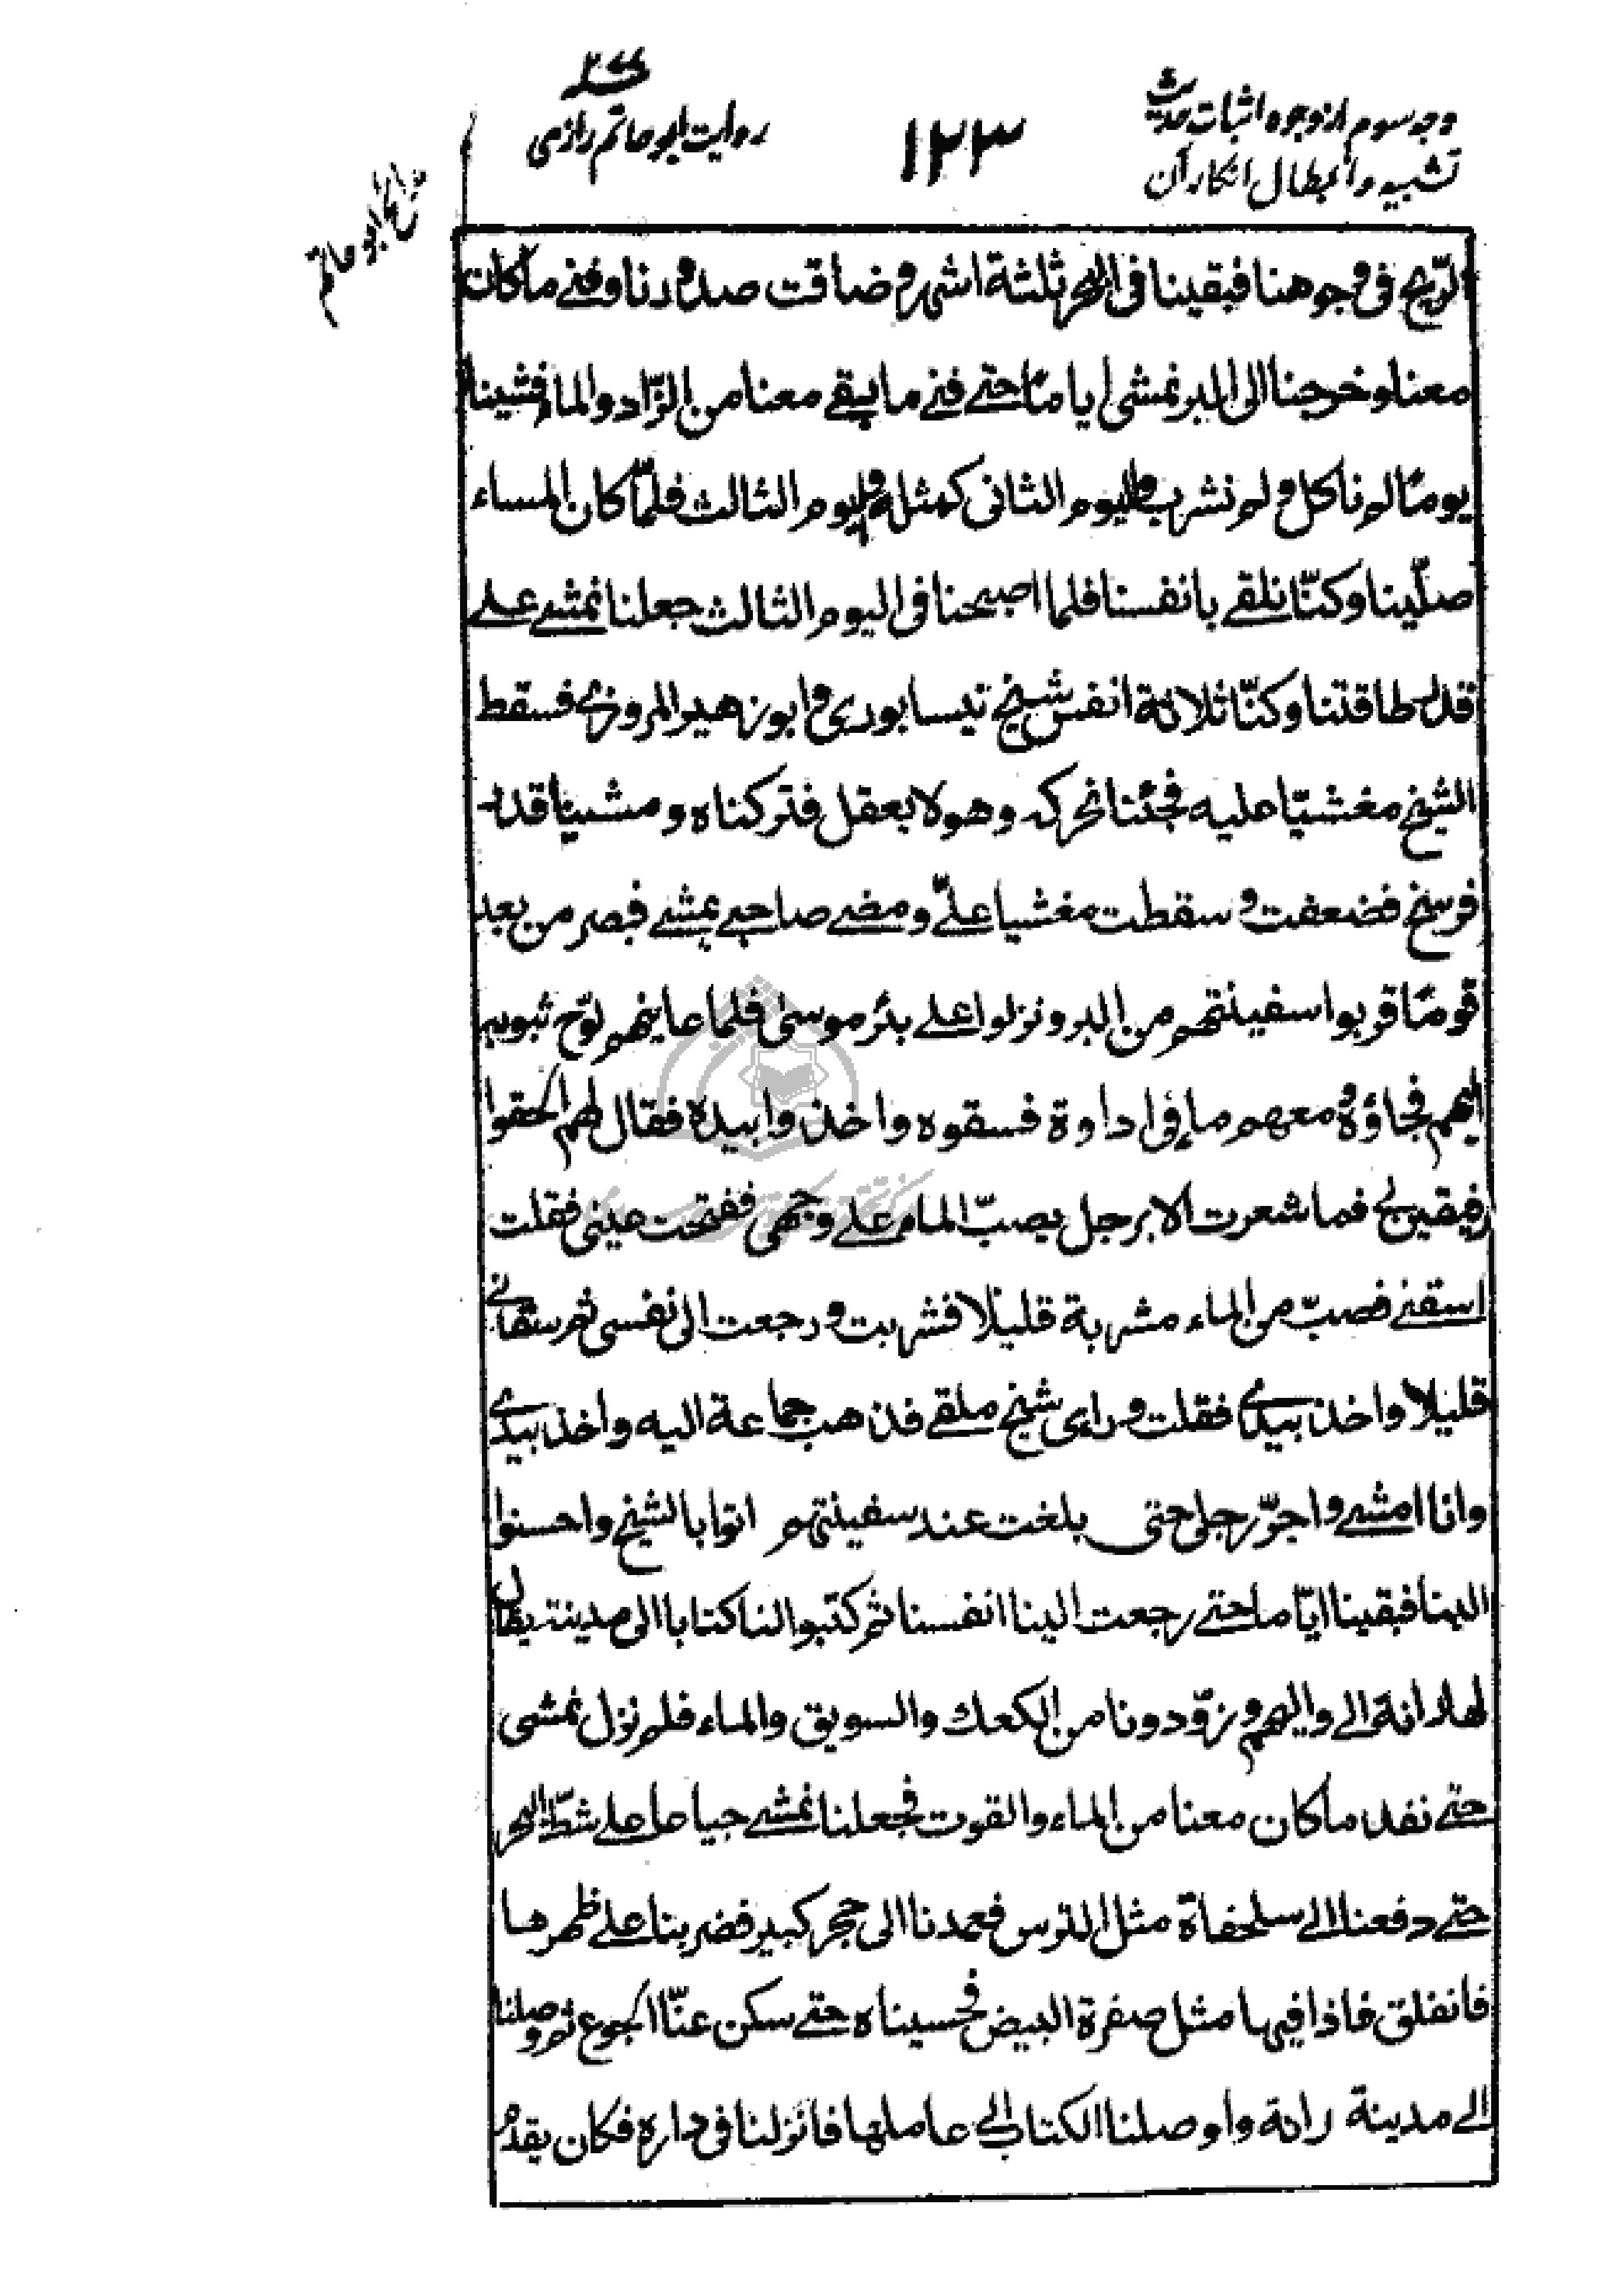 وجه سوم از وجوه اثبات حدیث
تشبیه و ابطال انکار آن
۱۲۳
روایت ابو حاتم رازی
الرّيح فى وجوهنا فبقينا فى البحر ثلثة اشهر وضاقت صدورنا وفنى ما كان
معنا وخرجنا الى البر نمشى اياما حتى فنى ما بقى معنا من الزّاد والماء فمشينا
يومًا لم ناكل ولم نشرب واليوم الثانى كمثله واليوم الثالث فلمّا كان المساء
صلّينا وكنّا نلقى بانفسنا فلما اصبحنا فى اليوم الثالث جعلنا نمشى على
قدر طاقتنا وكنّا ثلاثة انفس شيخ نيسابورى وابو زهير المروزى فسقط
الشيخ مغشيّا عليه فجئنا نحركه وهو لا يعقل فتركناه ومشينا قدر
فرسخ فضعفت وسقطت مغشيا علىّ ومضى صاحبى يمشى فبصر من بعد
قومًا قربوا سفينتهم من البر ونزلوا على بئر موسى فلما عاينهم لوّح بثوبه
اليهم فجاؤه ومعهم ماء فى اداوة فسقوه واخذوا بيده فقال لهم الحقوا
رفيقين لى فما شعرت الا برجل يصبّ الماء على وجهى ففتحت عينى فقلت
اسقنى فصبّ من الماء مشربة قليلا فشربت ورجعت الى نفسى ثم سقانى
قليلا واخذ بيدى فقلت وراءى شيخ ملقى فذهب جماعة اليه واخذ بيدى
وانا امشى واجرّ رجلى حتى بلغت عند سفينتهم اتوا بالشيخ واحسنوا
الينا فبقينا ايّاما حتى رجعت الينا انفسنا ثم كتبوا لنا كتابا الى مدينة يقال
لها رانة الى واليهم وزوّدونا من الكعك والسويق والماء فلم نزل نمشى
حتى نفد ما كان معنا من الماء والقوت فجعلنا نمشى جياعا على شطّ البحر
حتى دفعنا الى سلحفاة مثل الترس فعمدنا الى حجر كبير فضربنا على ظهرها
فانفلق فاذا فيها مثل صفرة البيض فحسيناه حتى سكن عنّا الجوع ثم وصلنا
الى مدينة رانة واوصلنا الكتاب الى عاملها فانزلنا فى داره فكان يقدم